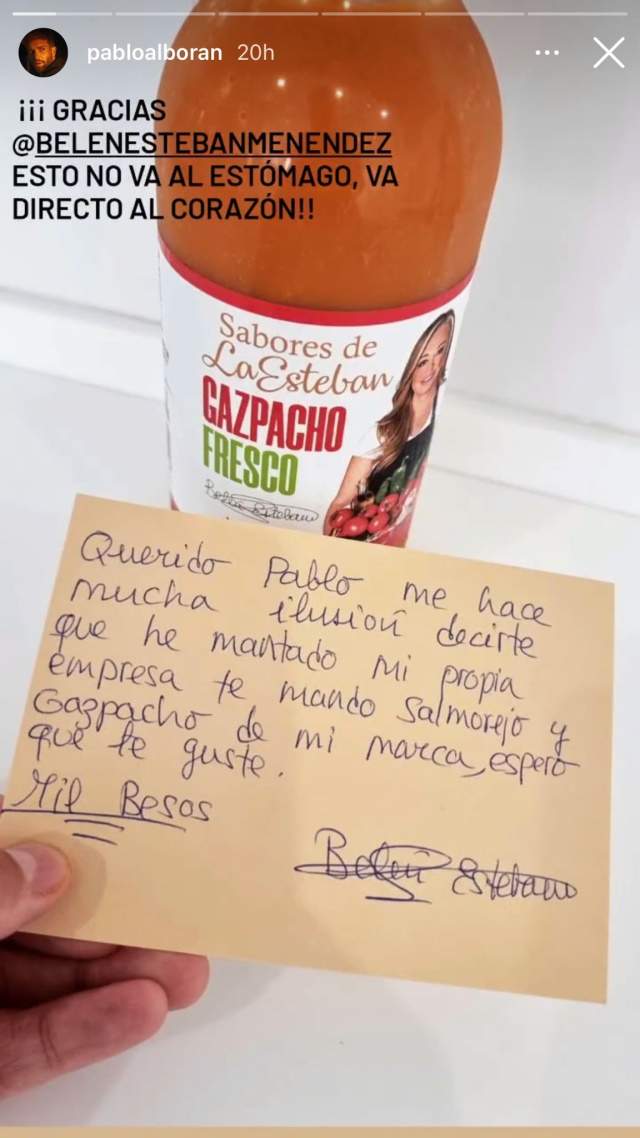 pabloalboran 20h
¡¡¡ GRACIAS
@BELENESTEBANMENENDEZ
ESTO NO VA AL ESTÓMAGO, VA
DIRECTO AL CORAZÓN!!
Sabores de
La Esteban
GAZPACHO
FRESCO
Belén Esteban
Querido Pablo me hace
mucha ilusión decirte
que he mantado mi propia
empresa te mando Salmorejo y
Gazpacho de mi marca, espero
que te guste.
Mil Besos
Belén Esteban